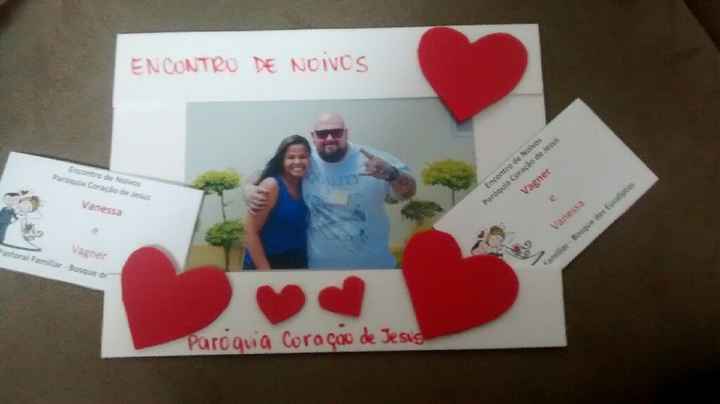 ENCONTRO DE NOIVOS
Encontro de Noivos
Paróquia Coração de Jesus
Vanessa
e
Vagner
Pastoral Familiar - Bosque
Encontro de Noivos
Paróquia Coração de Jesus
Vagner
e
Vanessa
Familiar - Bosque dos Eucaliptos
Paróquia Coração de Jesus